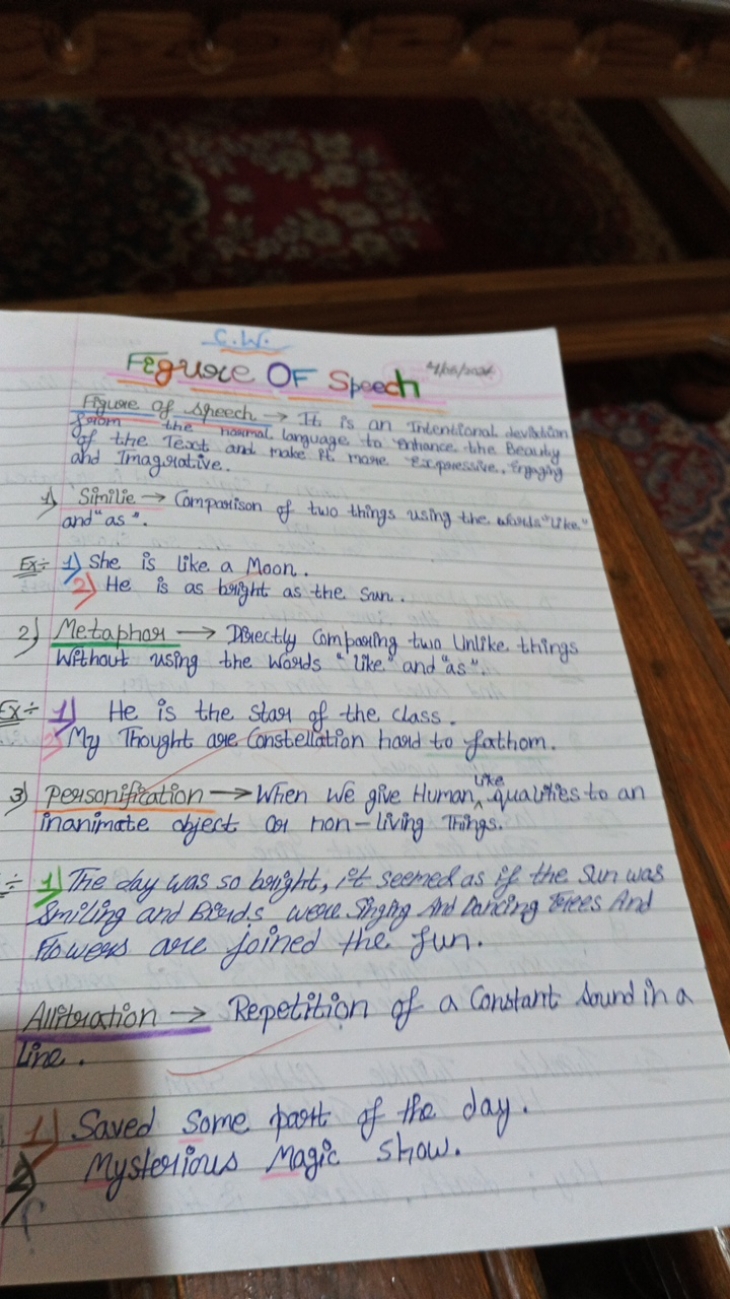 C.W.
Figure OF Speech
Figure of speech → It is an Intentional deviation
from the normal language to enhance the Beauty
of the Text and make it more Expressive, Engaging
and Imagrative.
1) Similie → Comparison of two things using the words "like"
and "as".
Ex÷ 1) She is like a Moon.
2) He is as bright as the Sun.
2) Metaphor → Directly Comparing two Unlike things
Without using the Words "like" and "as".
Ex÷ 1) He is the Star of the Class.
2) My Thought are Constellation hard to fathom.
3) Personification → When We give Human like qualities to an
inanimate object or non-living Things.
÷ 1) The day was so bright, it seemed as if the Sun was
Smiling and Birds were Singing And Dancing Trees And
Flowers are joined the fun.
Allitration → Repetition of a Constant Sound in a
Line.
1) Saved Some part of the day.
2) Mysterious Magic show.